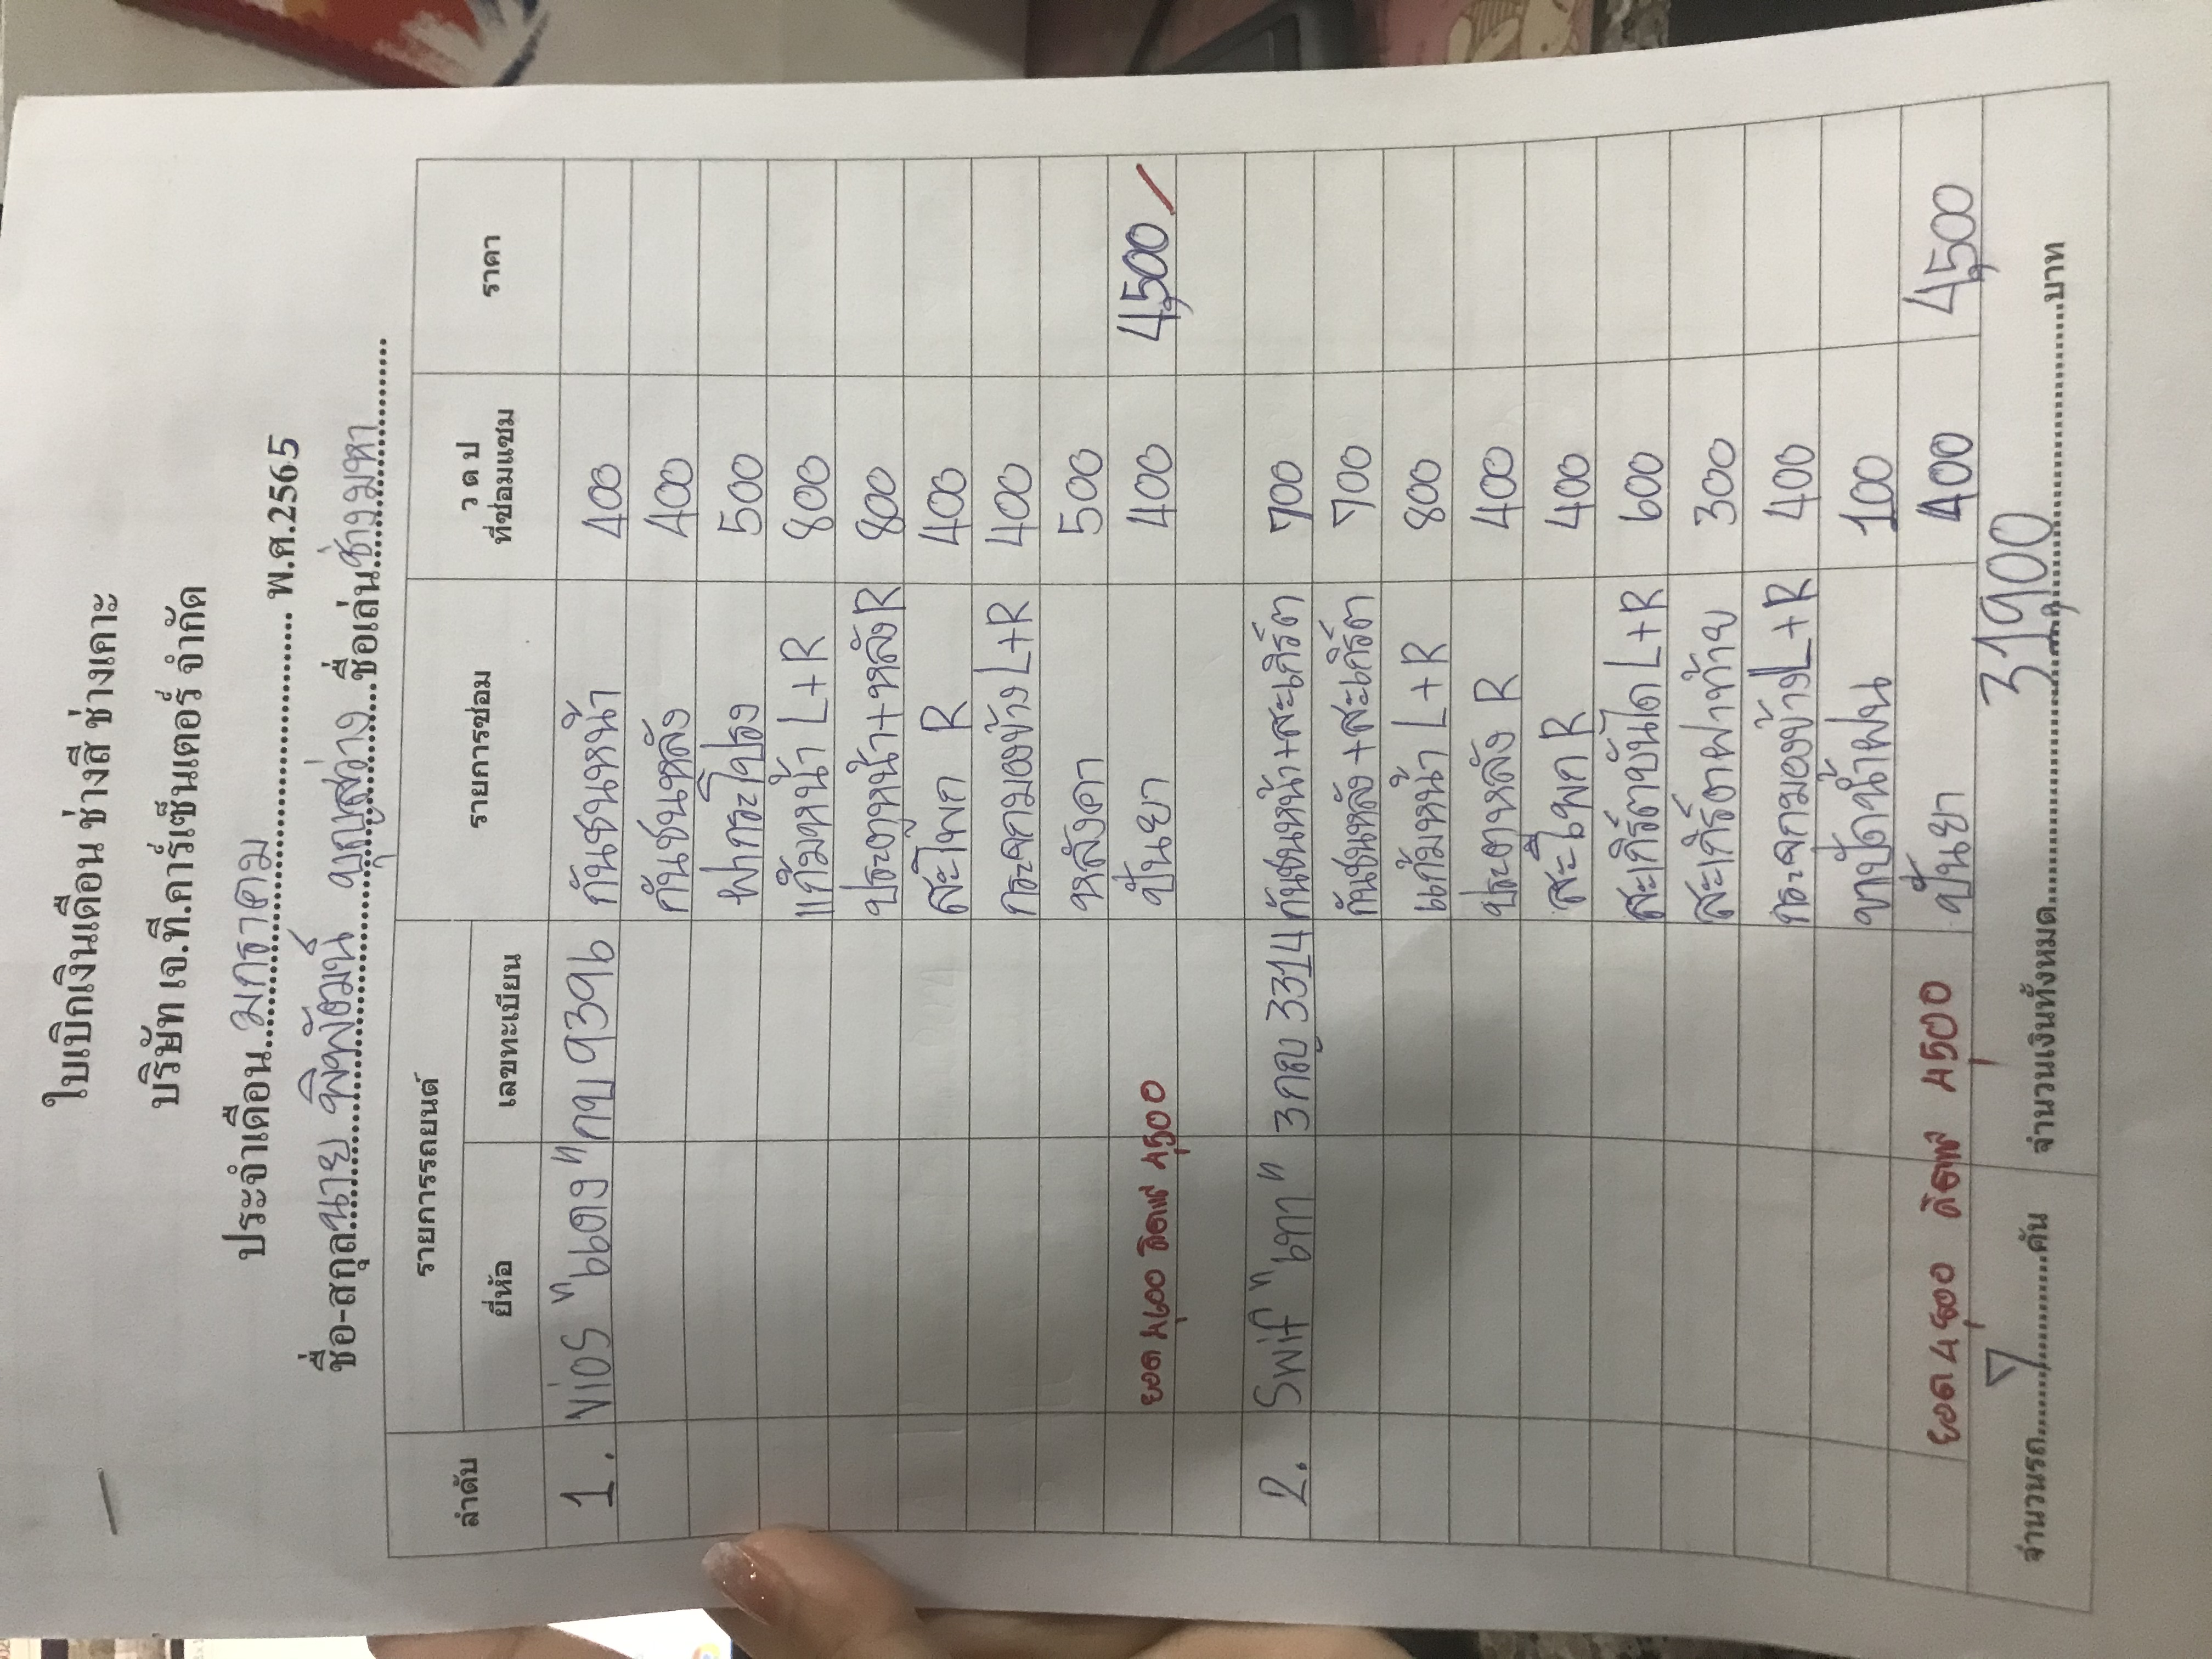 ใบเบิกเงินเดือน ช่างสี ช่างเคาะ
บริษัท เจ.ที.คาร์เซ็นเตอร์ จำกัด
ประจำเดือน มกราคม พ.ศ.2565
ชื่อ-สกุล นาย พิพัฒน์ บุญสว่าง ชื่อเล่น ช่างมหา
ลำดับ รายการรถยนต์ รายการซ่อม ว ด ป ที่ซ่อมแซม ราคา
ยี่ห้อ เลขทะเบียน
1. Vios "แดง" กบ 9396 กันชนหน้า 400
กันชนหลัง 400
ฝากระโปรง 500
แก้มหน้า L+R 800
ประตูหน้า+หลัง R 800
สะโพก R 400
กระจกมองข้าง L+R 400
หลังคา 500
ยอด 4,600 คิดแค่ 4,500 ปั่นยา 400 4,500
2. Swif "เทา" 3กญ 3314 กันชนหน้า+สะเกิร์ต 700
กันชนหลัง+สะเกิร์ตา 700
แก้มหน้า L+R 800
ประตหลัง R 400
สะโพก R 400
สะเกิร์ตบันได L+R 600
สะเกิร์ตฝาท้าย 300
กระจกมองข้าง L+R 400
ทปัดน้ำฝน 100
ยอด 4,800 คิดแค่ 4,500 ปั่นยา 400 4,500
จำนวนรถ 7 คัน จำนวนเงินทั้งหมด 31,900 บาท